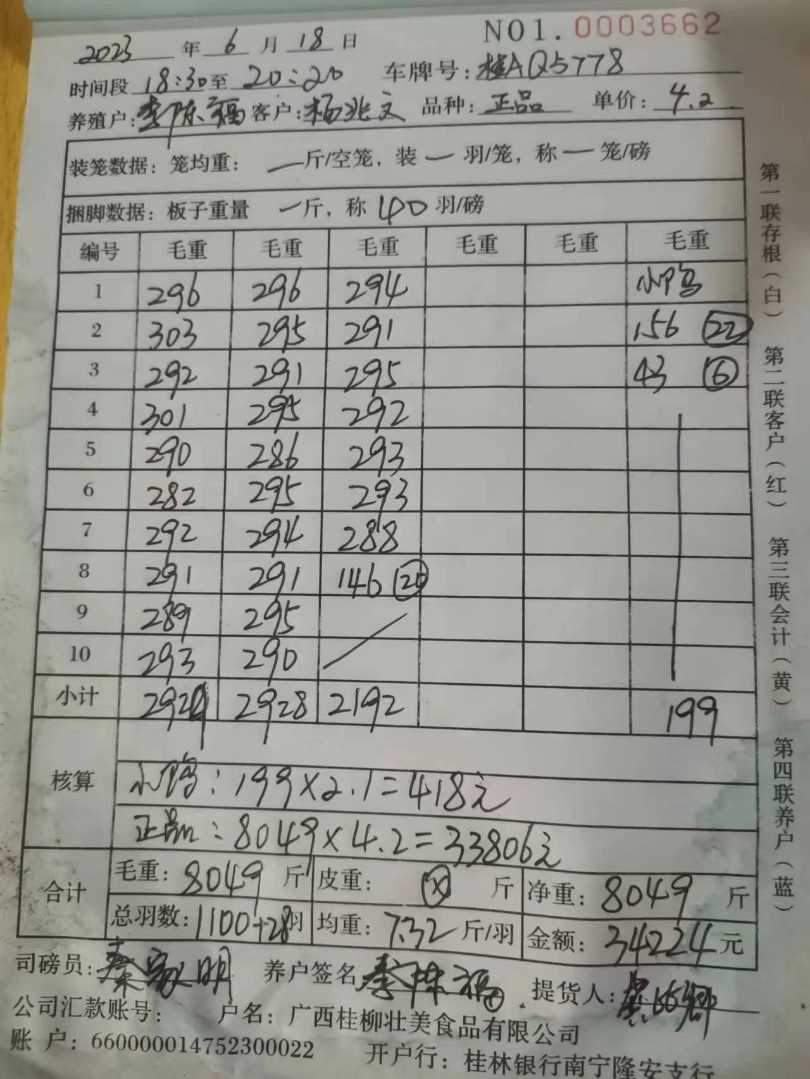 NO1.0003662
2023 年 6 月 18 日
时间段 18:30 至 20:20 车牌号: 桂AQ5778
养殖户: 李陈福 客户: 杨兆文 品种: 正品 单价: 4.2
装笼数据: 笼均重: 一 斤/空笼, 装 一 羽/笼, 称 一 笼/磅
捆脚数据: 板子重量 一 斤, 称 40 羽/磅
编号 毛重 毛重 毛重 毛重 毛重 毛重
1 296 296 294 小鸭
2 303 295 291 156 22
3 292 291 295 43 6
4 301 295 292
5 290 286 293
6 282 295 293
7 292 294 288
8 291 291 146 20
9 289 295
10 293 290
小计 2929 2928 2192 199
核算
小鸭: 199×2.1=418元
正品: 8049×4.2=33806元
合计
毛重: 8049 斤 皮重: 斤 净重: 8049 斤
总羽数: 1100+28 羽 均重: 7.32 斤/羽 金额: 34224 元
司磅员: 秦家明 养户签名 李陈福 提货人:
公司汇款账号: 户名: 广西桂柳壮美食品有限公司
账 户: 660000014752300022 开户行: 桂林银行南宁隆安支行
第一联存根(白) 第二联客户(红) 第三联会计(黄) 第四联养户(蓝)